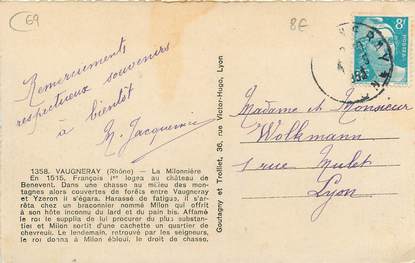 69
8E
8F
POSTES
Remerciement
respectueux souvenirs
à bientôt
Madame et Monsieur
Wolkmann
1 rue Mulet
Lyon
Goutagny et Trolliet, 36, rue Victor-Hugo, Lyon
1358. VAUGNERAY (Rhône) — La Milonnière
En 1515, François Ier logea au château de
Benevent. Dans une chasse au milieu des mon-
tagnes alors couvertes de forêts entre Vaugneray
et Yzeron il s'égara. Harassé de fatigue, il s'ar-
rêta chez un braconnier nommé Milon qui offrit
à son hôte inconnu du lard et du pain bis. Affamé
le roi le supplia de lui procurer du plus substan-
tier et Milon sortit d'une cachette un quartier de
chevreuil. Le lendemain, retrouvé par les seigneurs,
le roi donna à Milon ébloui, le droit de chasse.